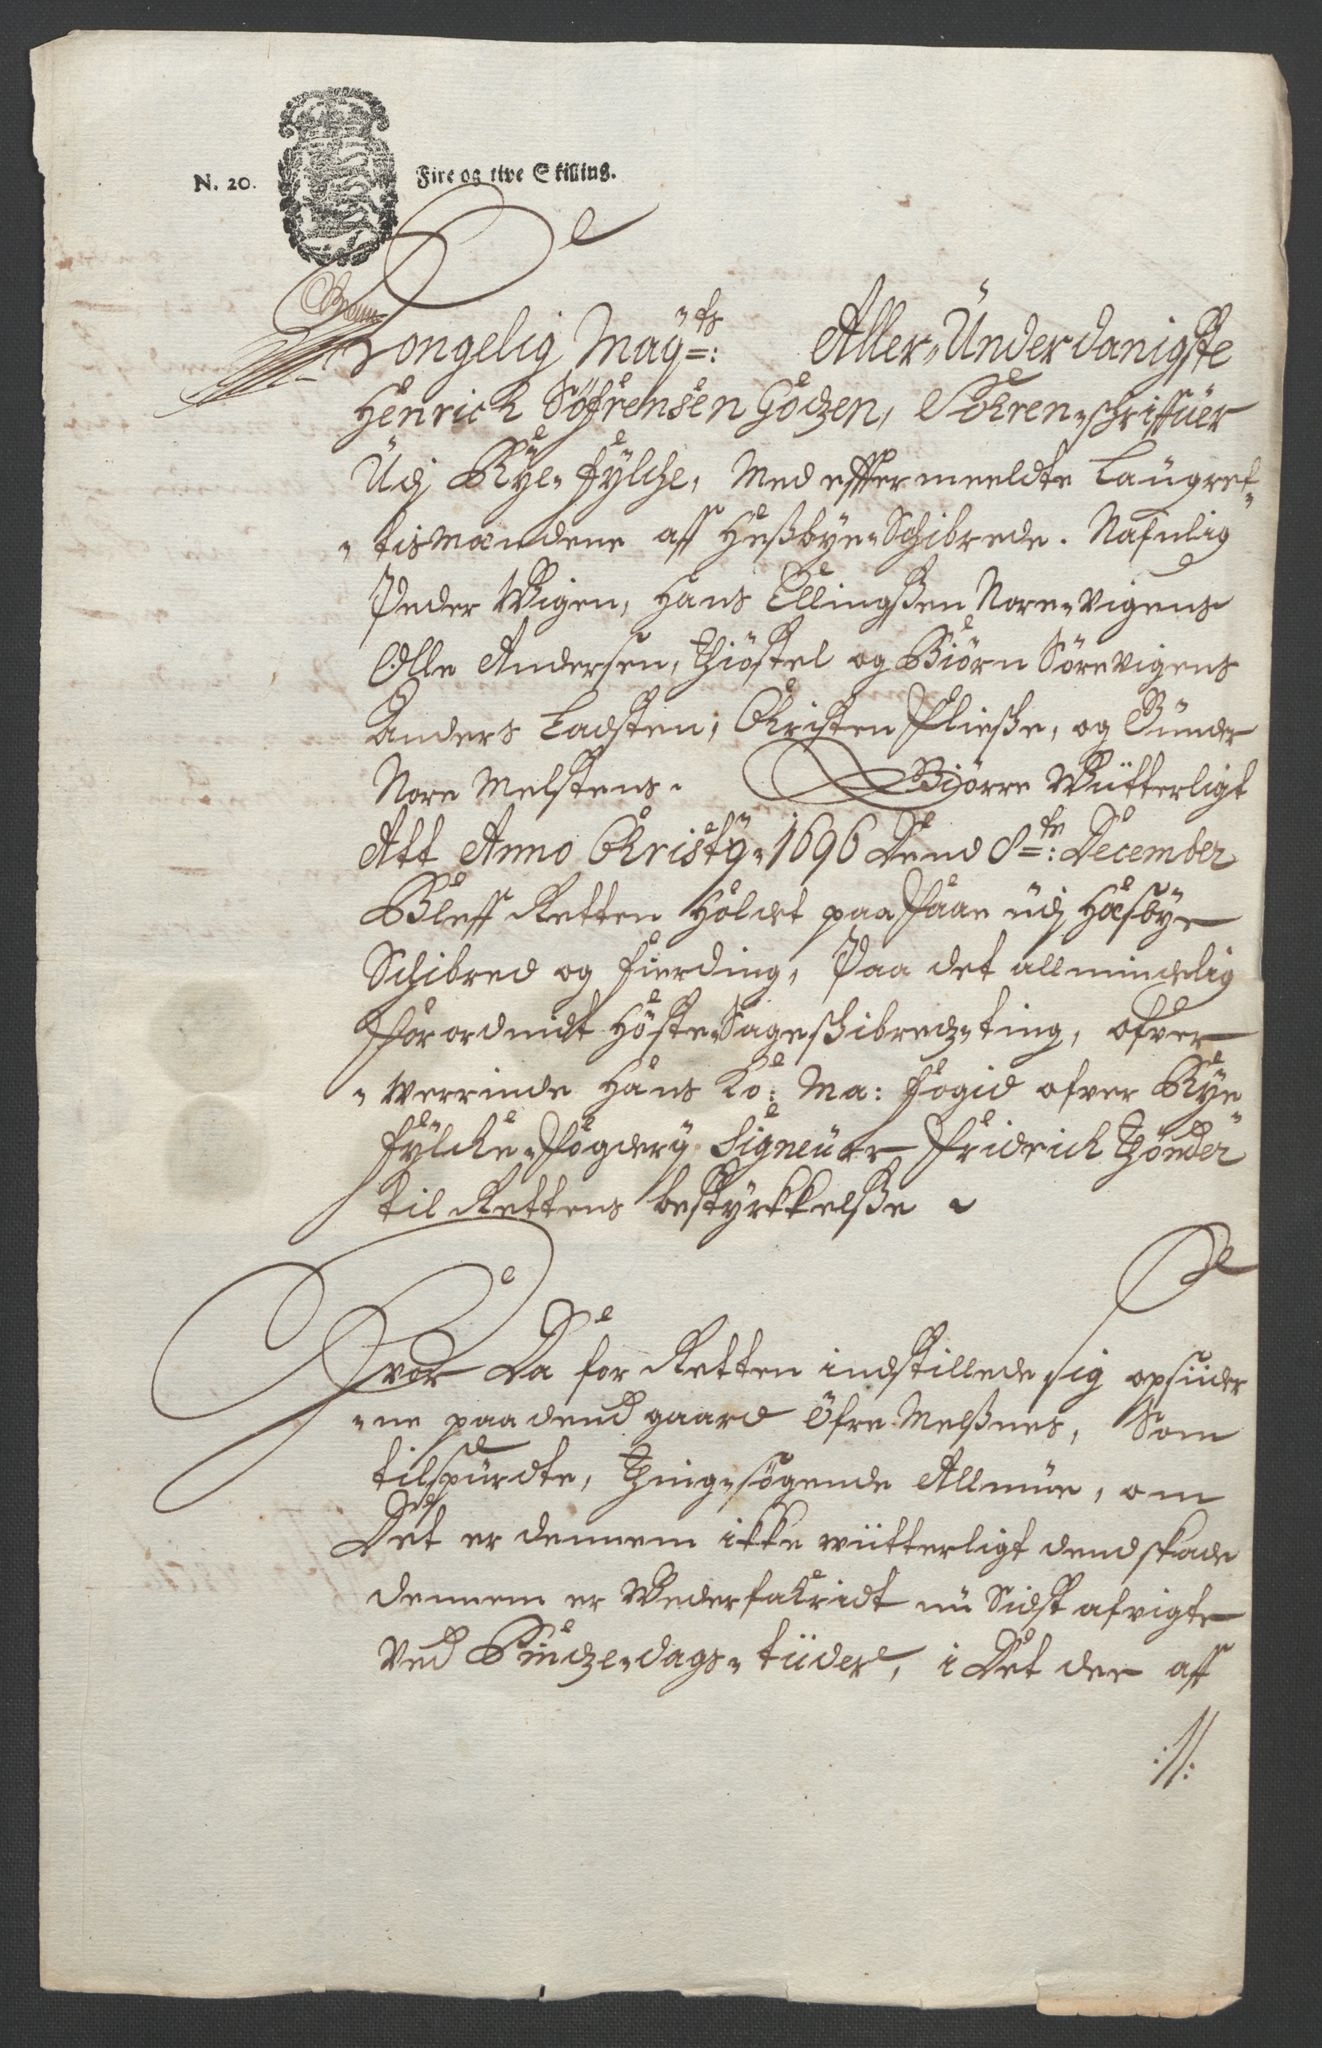 N. 20. Fire og tive Skilling.
Kongelig May=ts: Aller-Underdanigste
Henrick Söfrensen Godzen, Sohren-schriffuer
Udj Rye-fylche, Med effter meeldte Laugret-
-tismændene aff Hessbye-Schibrede. Nafnlig
Peder Wigen, Hans Ellingssen Nore-vigens
Olle Andersen, Thiöstel og Biörn Sörevigens
Anders Ladsten, Christen Fliesse, og Gunder
Nore Melstens. Giörre Witterligt
Att Anno Christÿ 1696 Dend 8=tn: December
Bleff Retten Holdet paa Faae udj Hæsbye
Schibred og fierding, Paa det allmindelig
Forordnidt Höste-Sageskibredz-ting, ofver
-werrinde Hans Ko: Ma: fogid ofver Rye
fylcke-Fogderÿ Signeur Fridrich Thönder
til Rettens bestyrkkelsse
Hvor Da for Retten indstillede sig opsider
-ne paa dend gaard Öfre Melssnes, Som
tilspurdte, Ting-sögende Allmue, om
Det er dennem ikke witterligt dend skade
dennem er Wederfahridt nu Sidst afvigte
Ved Pindze-dags-tiider, i Det der aff
://: